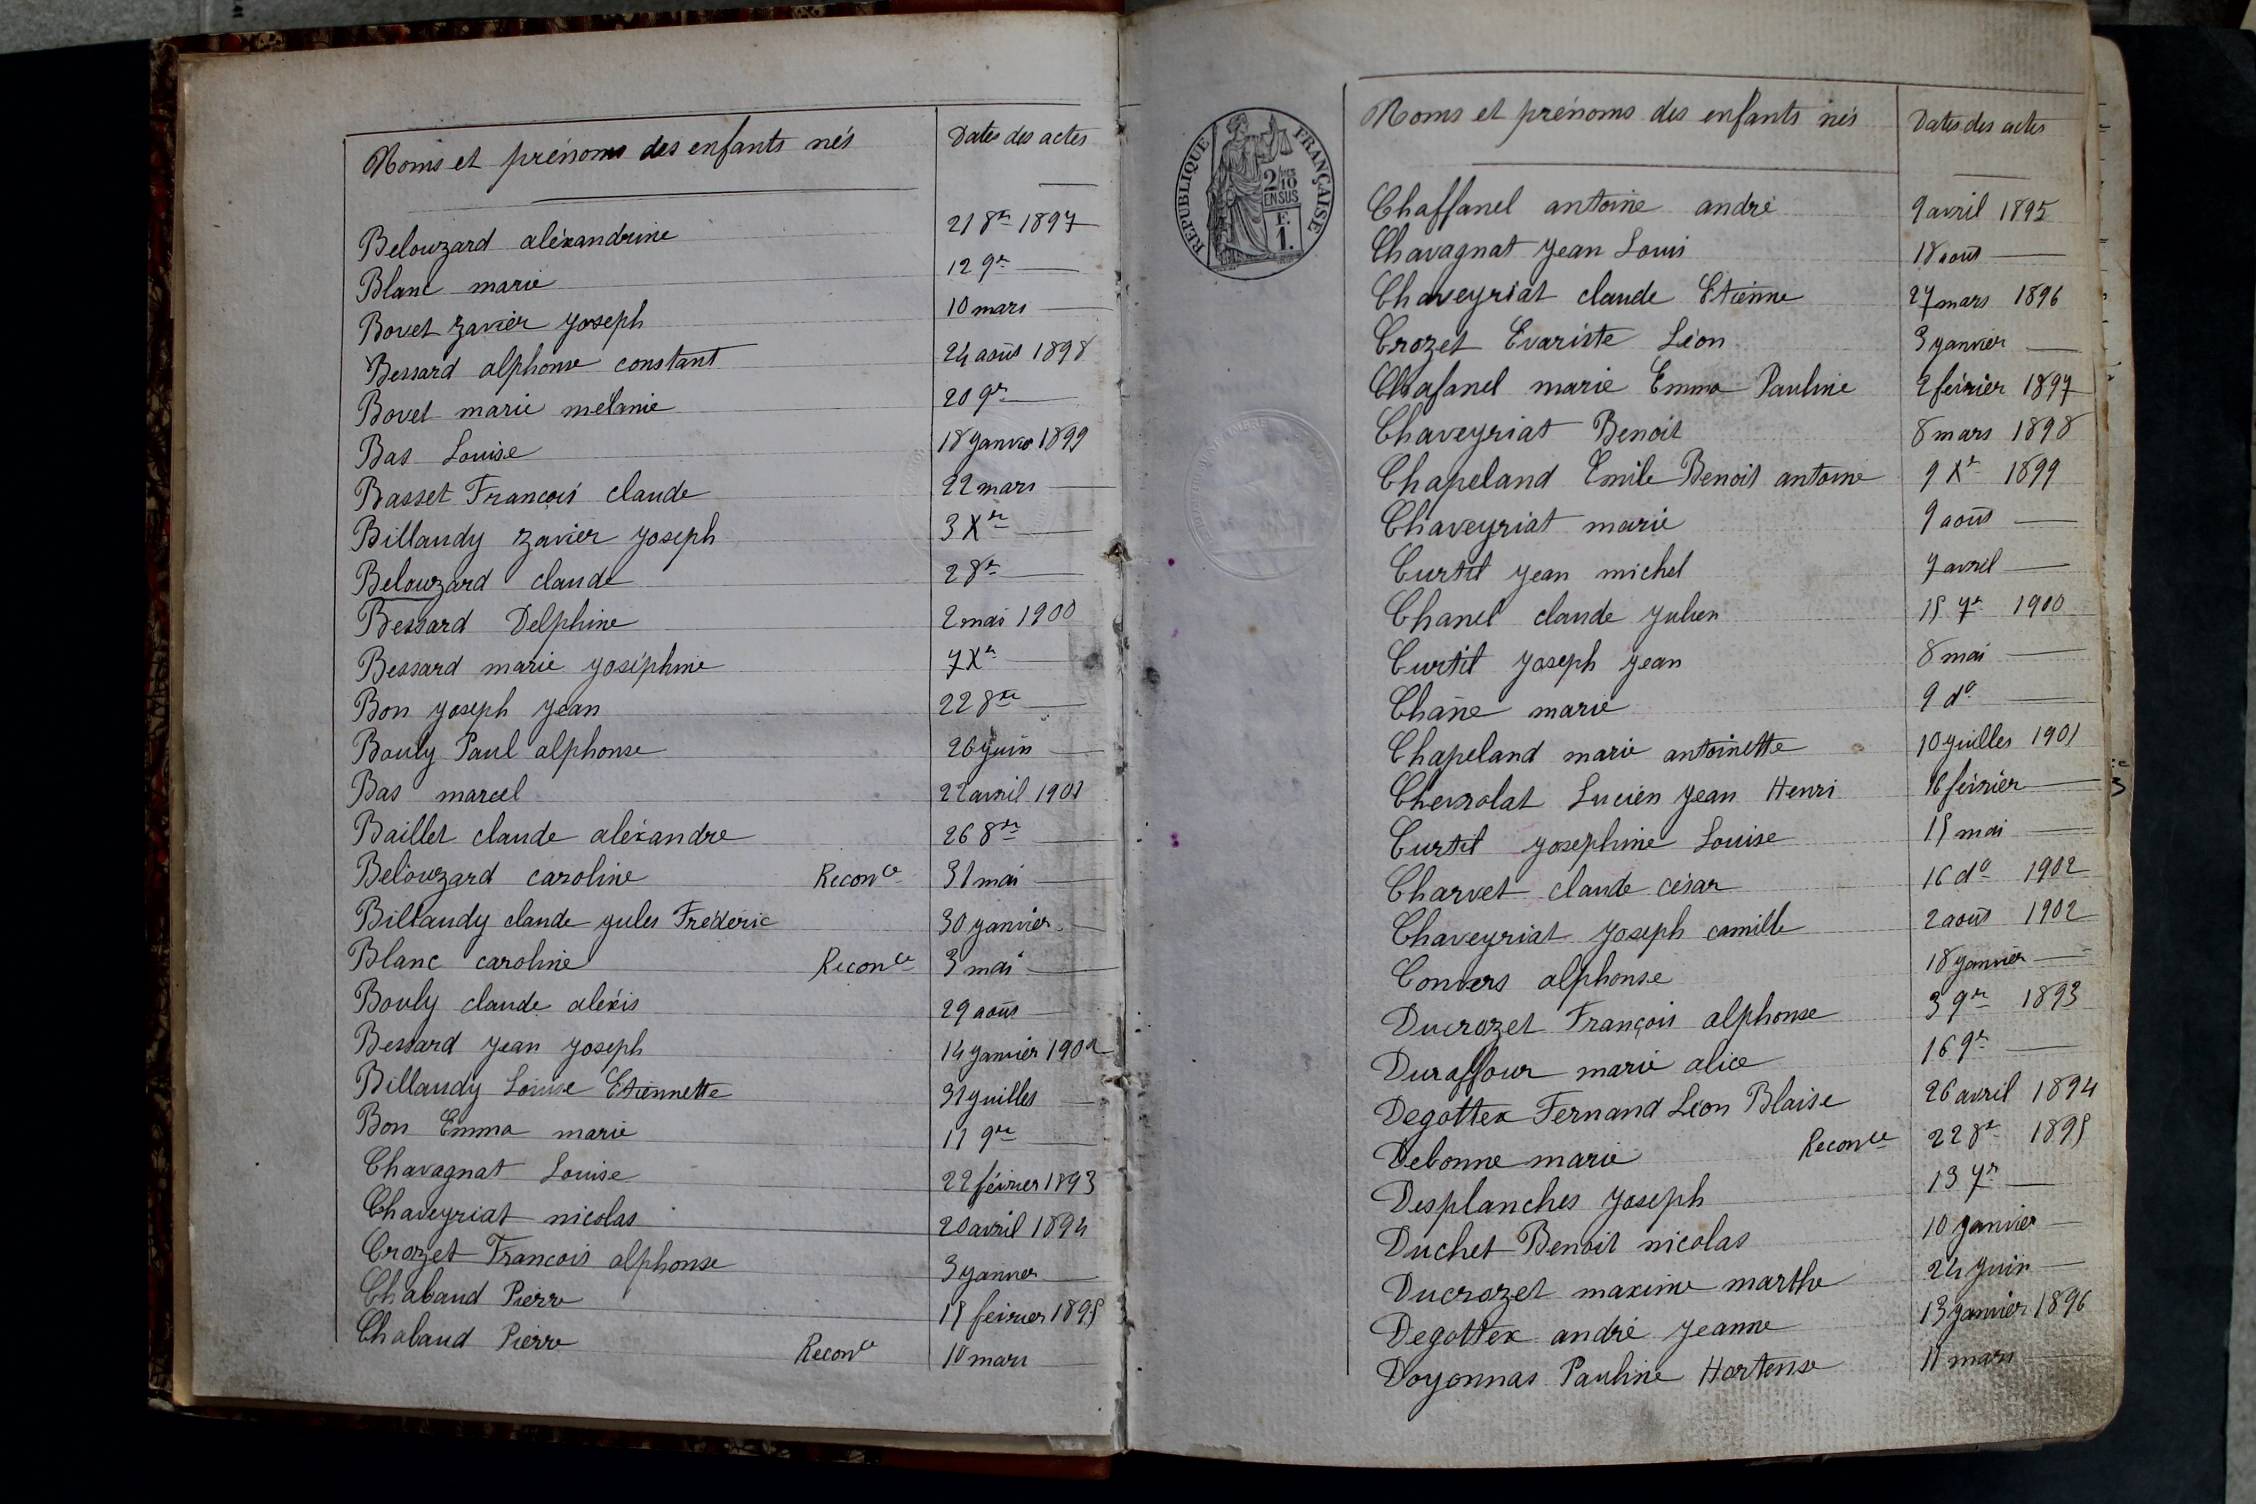 Noms et prénoms des enfants nés Dates des actes
Belouzard aléxandrine 21 8re 1897
Blanc marie 12 9re —
Bovet Zavier Joseph 10 mars —
Bessard alphonse constant 24 août 1898
Bovet marie mélanie 20 9re —
Bas Louise 18 Janvier 1899
Basset François claude 22 mars —
Billaudy Zavier Joseph 3 Xre —
Belouzard claude 2 8re —
Bessard Delphine 2 mai 1900
Bessard marie Joséphine 7 Xre —
Bon Joseph Jean 22 8re —
Bouly Paul alphonse 26 Juin —
Bas marcel 22 avril 1901
Baillet claude aléxandre 26 8re —
Belouzard caroline Reconce 31 mai —
Billaudy claude Jules Fréderic 30 Janvier —
Blanc caroline Reconce 3 mai —
Bouly claude aléxis 29 août —
Bessard Jean Joseph 14 Janvier 1902
Billaudy Louise Etiennette 31 Juillet —
Bon Emma marie 11 9re —
Chavagnat Louise 22 février 1893
Chaveyriat nicolas 20 avril 1894
Crozet François alphonse 3 Janvier —
Chabaud Pierre 15 février 1895
Chabaud Pierre Reconce 10 mars —
REPUBLIQUE FRANÇAISE
2/10
EN SUS
F.
1.
Noms et prénoms des enfants nés Dates des actes
Chaffanel antoine andré 9 avril 1895
Chavagnat Jean Louis 18 août —
Chaveyriat claude Etienne 27 mars 1896
Crozet Evariste Léon 3 Janvier —
Chafanel marie Emma Pauline 2 février 1897
Chaveyriat Benoit 8 mars 1898
Chapeland Emile Benoit antoine 9 Xre 1899
Chaveyriat marie 9 août —
Curtil Jean michel 7 avril —
Chanel claude Julien 15 7re 1900
Curtil Joseph Jean 8 mai —
Chane marie 9 do —
Chapeland marie antoinette 10 Juillet 1901
Chevrolat Lucien Jean Henri 16 février —
Curtil Josephine Louise 15 mai —
Charvet claude césar 16 do 1902
Chaveyriat Joseph camille 2 août 1902
Convers alphonse 18 Janvier —
Ducrozet François alphonse 3 9re 1893
Duraffour marie alice 16 9re —
Degottex Fernand Léon Blaise 26 avril 1894
Debonne marie Reconce 22 8re 1895
Desplanches Joseph 13 7re —
Duchet Benoit nicolas 10 Janvier —
Ducrozet maxime marthe 24 Juin —
Degottex andré Jeanne 13 Janvier 1896
Doyonnas Pauline Hortense 11 mars —